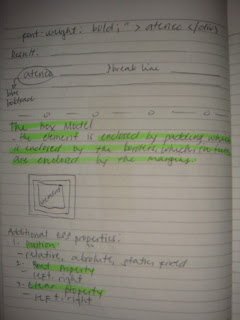 font-weight: bold;" > atence </div>
Result:
atence > break line
box
The Box Model
- the element is enclosed by padding, which
is enclosed by the borders, which in turn
are enclosed by the margins.
element
Additional CSS properties:
1. Position
- relative, absolute, static, fixed
2. Float Property
- left, right
3. Clear Property
- left, right